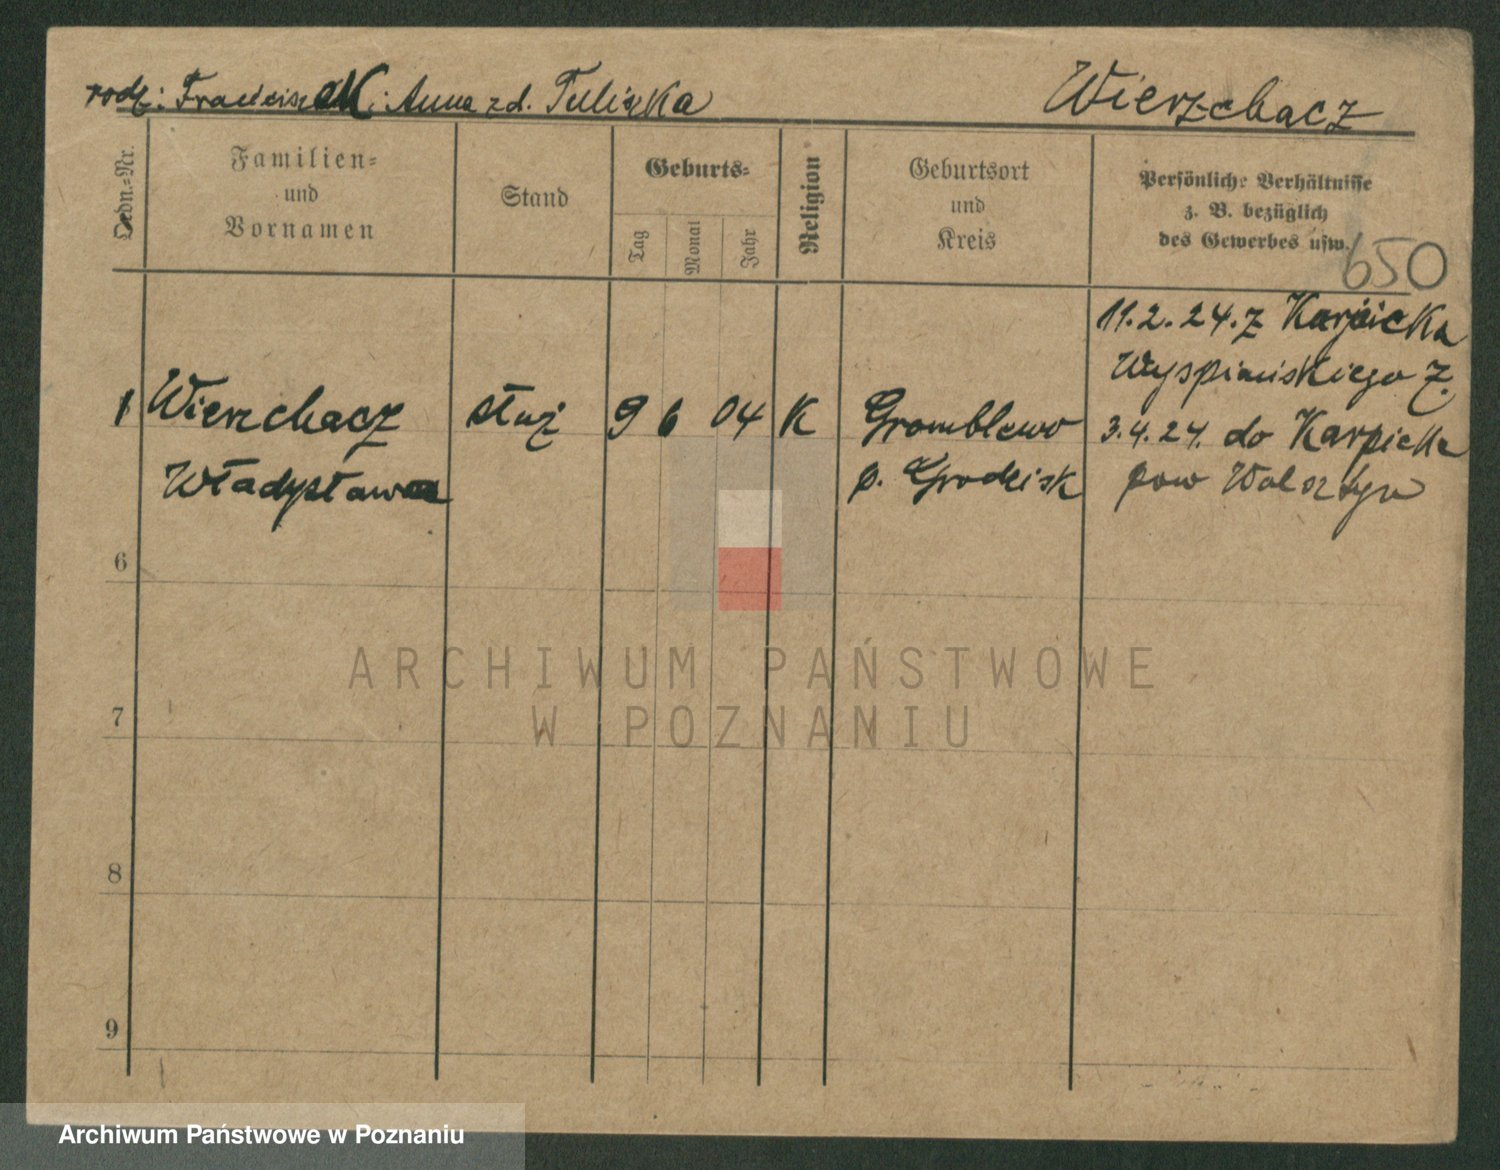 rodz: Franciszek i Anna z d. Tuliszka
Wierzchacz
Ordn.-Nr.
Familien-
und
Vornamen
Stand
Geburts-
Tag
Monat
Jahr
Religion
Geburtsort
und
Kreis
Persönliche Verhältnisse
z. B. bezüglich
des Gewerbes usw.
650
11.2.24. z Karpicka
Wyspiańskiego 7.
1 Wierzchacz służ 9 6 04 K Gromblewo 3.4.24. do Karpicka
Władysława p. Grodzisk pow Wolsztyn
6
7
8
9
ARCHIWUM PAŃSTWOWE
W POZNANIU
Archiwum Państwowe w Poznaniu